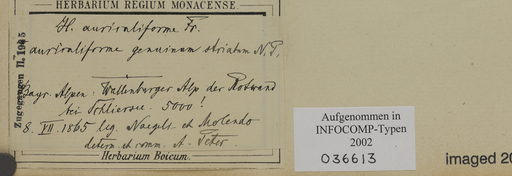 HERBARIUM REGIUM MONACENSE
H. auriculiforme Fr.
auriculiforme genuinum striatum N. P.
Zugegangen II. 1915
Bayr. Alpen: Wallenburger Alp der Rotwand
bei Schliersee. 5000'!
8. VII. 1865 leg. Naegeli et Molendo
determ. et comm. A. Peter.
Herbarium Boicum.
Aufgenommen in
INFOCOMP-Typen
2002
036613
imaged 20